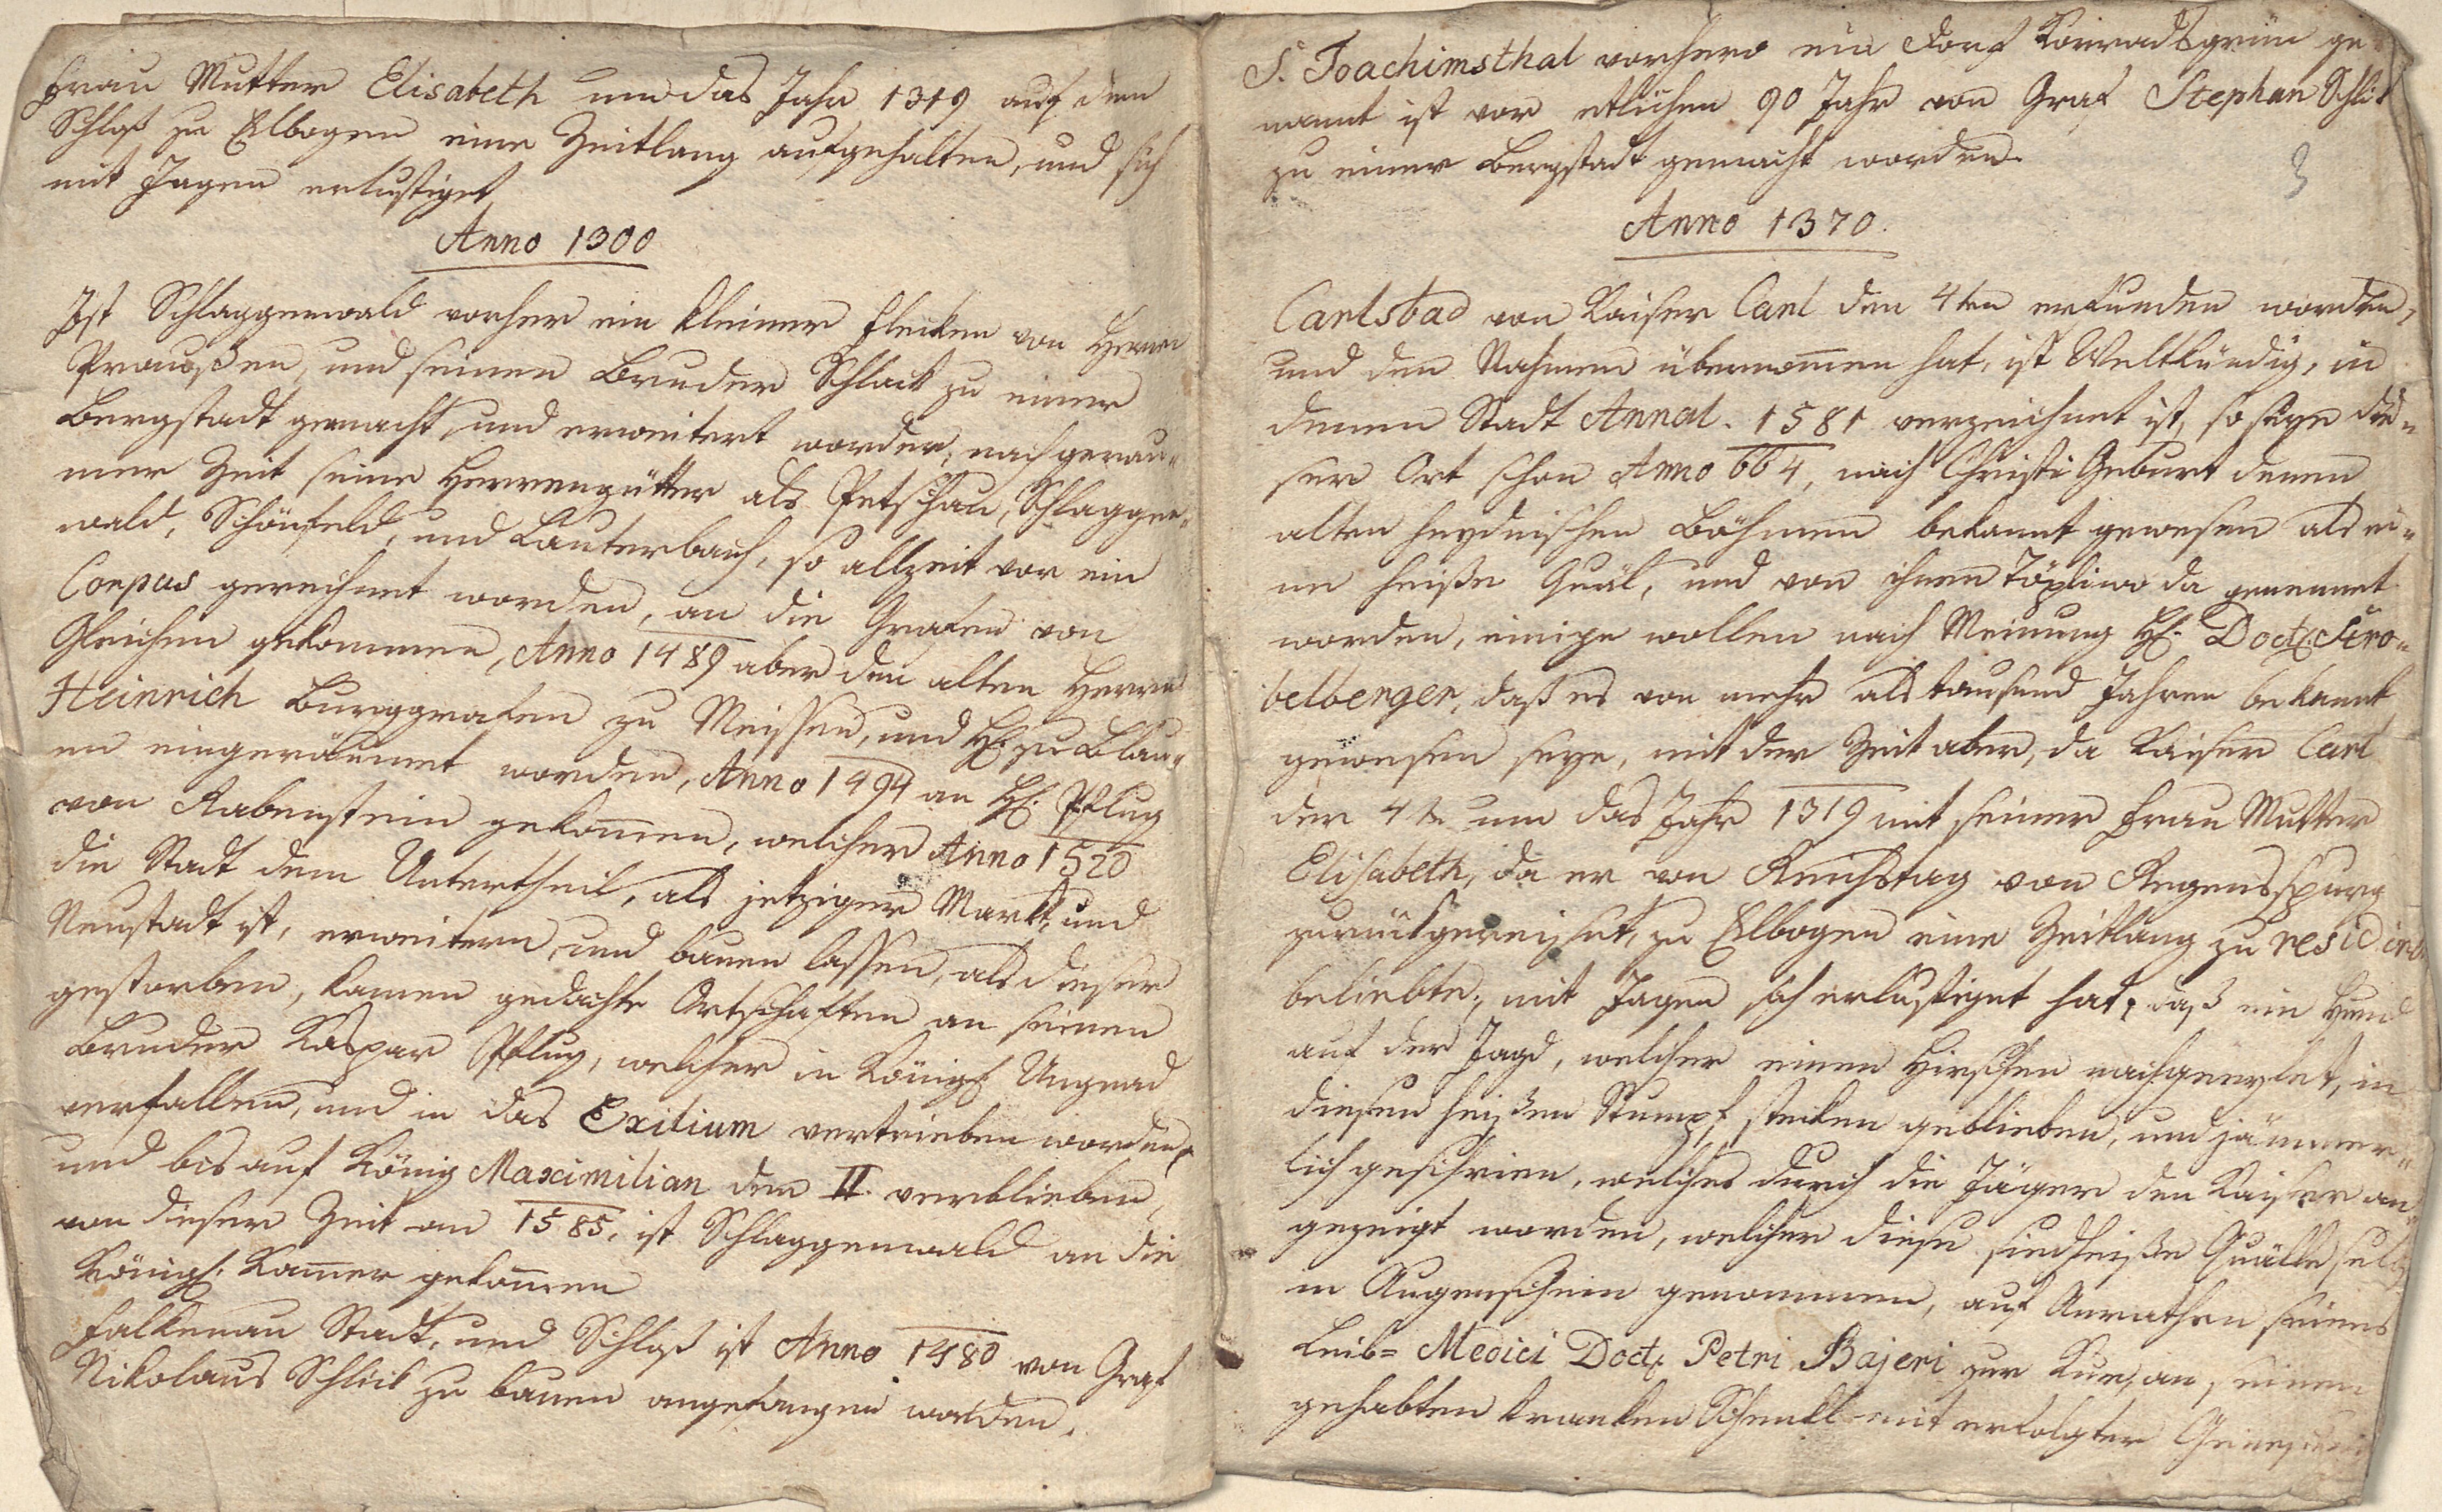 Frau Mutter Elisabeth um das Jahr 1319 auf dem
Schloß zu Elbogen eine Zeitlang aufgehalten, und sich
mit Jagen erlustiget
Anno 1300
Ist Schlaggenwald vorher ein kleiner Flecken von Herrn
Praußen, und seinen Bruder Schlack zu einer
Bergstadt gemacht, und erweitert worden, nach gerau„
mer Zeit seine Herrengütter als Petschau, Schlaggen„
wald, Schönfeld, und Lauterbach, so allzeit vor ein
Corpus gerechnet worden, an die Grafen von
Gleichen gekommen, Anno 1489 aber den alten Herrn
Heinrich Burggrafen zu Meissen, und H. zu Blau„
en eingeräumet worden, Anno 1494 an H. Pflug
von Rabenstein gekom̅en, welcher Anno 1520
die Stadt dem Untertheil, als jetziger Markt, und
Neustadt ist, erweitern, und bauen lassen, als dieser
gestorben, kamen gedachte Ortschaften an seinen
Bruder Kaspar Pflug, welcher in Königl. Ungnad
verfallen, und in das Exilium vertrieben worden,
und bis auf König Maximilian dem II. verblieben,
von dieser Zeit an 1585, ist Schlaggenwald an die
Königl. Kam̅er gekom̅en
Falkenau Stadt, und Schloß ist Anno 1480 von Graf
Nikolaus Schlick zu bauen angefangen worden.
S. Joachimsthal vorhero ein Dorf Konradsgrün ge
nannt ist vor etlichen 90 Jahr von Graf Stephan Schlik
zu einer Bergstadt gemacht worden.
3
Anno 1370.
Carlsbad von Kaiser Carl den 4ten erfunden worden,
und den Nahmen übernom̅en hat, ist Weltkündig, in
denen Stadt Annal. 1581 verzeichnet ist, so seye die„
ser Ort schon Anno 664, nach Christi Geburt denen
alten heydnischen Böhmen bekannt gewesen als ei„
ne heiße Quäl, und von ihnen Töpliwoda genennet
worden, einige wollen nach Meinung H. Doct. Stro„
belberger, daß es von mehr als tausend Jahren bekannt
gewesen seye, mit der Zeit aber, da Kaiser Carl
der 4te um das Jahr 1319 mit seiner Frau Mutter
Elisabeth, da er von Reichstag von Regensspurg
zurückgereiset, zu Elbogen eine Zeitlang zu resid
beliebte, mit Jagen sich erlustiget hat, daß ein Hund
auf der Jagd, welcher einen Hirschen nachgeeylet, in
diesen heißen Stumpf stecken geblieben, und jämmer„
lich geschrien, welches durch die Jäger den Kaiser an„
gezeigt worden, welcher diese siedheiße Quälle selb
in Augenschein genommen, auf Anrathen seines
Leib= Medici Doct. Petri Bajeri zur Kur, an seinen
gehabten kranken Schenkl mit erfolgter